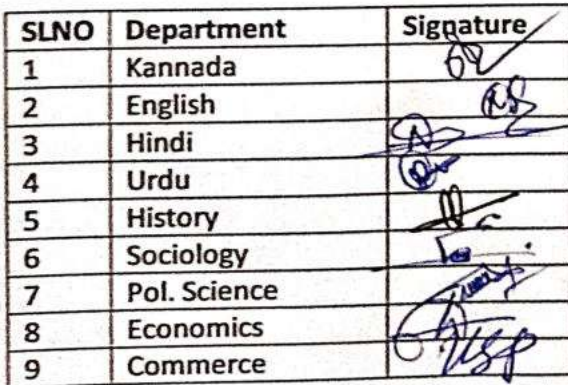 SLNO Department Signature
1 Kannada
2 English
3 Hindi
4 Urdu
5 History
6 Sociology
7 Pol. Science
8 Economics
9 Commerce